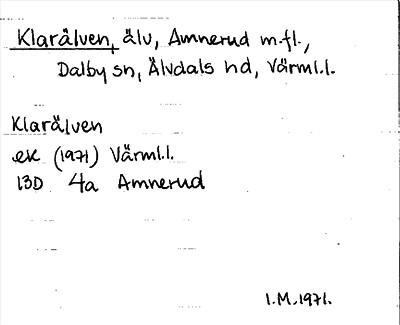 Klarälven, älv, Amnerud m.fl.,
Dalby sn, Älvdals hd, Värml.l.
Klarälven
ek (1971) Värml.l.
13D 4a Amnerud
I.M.1971.